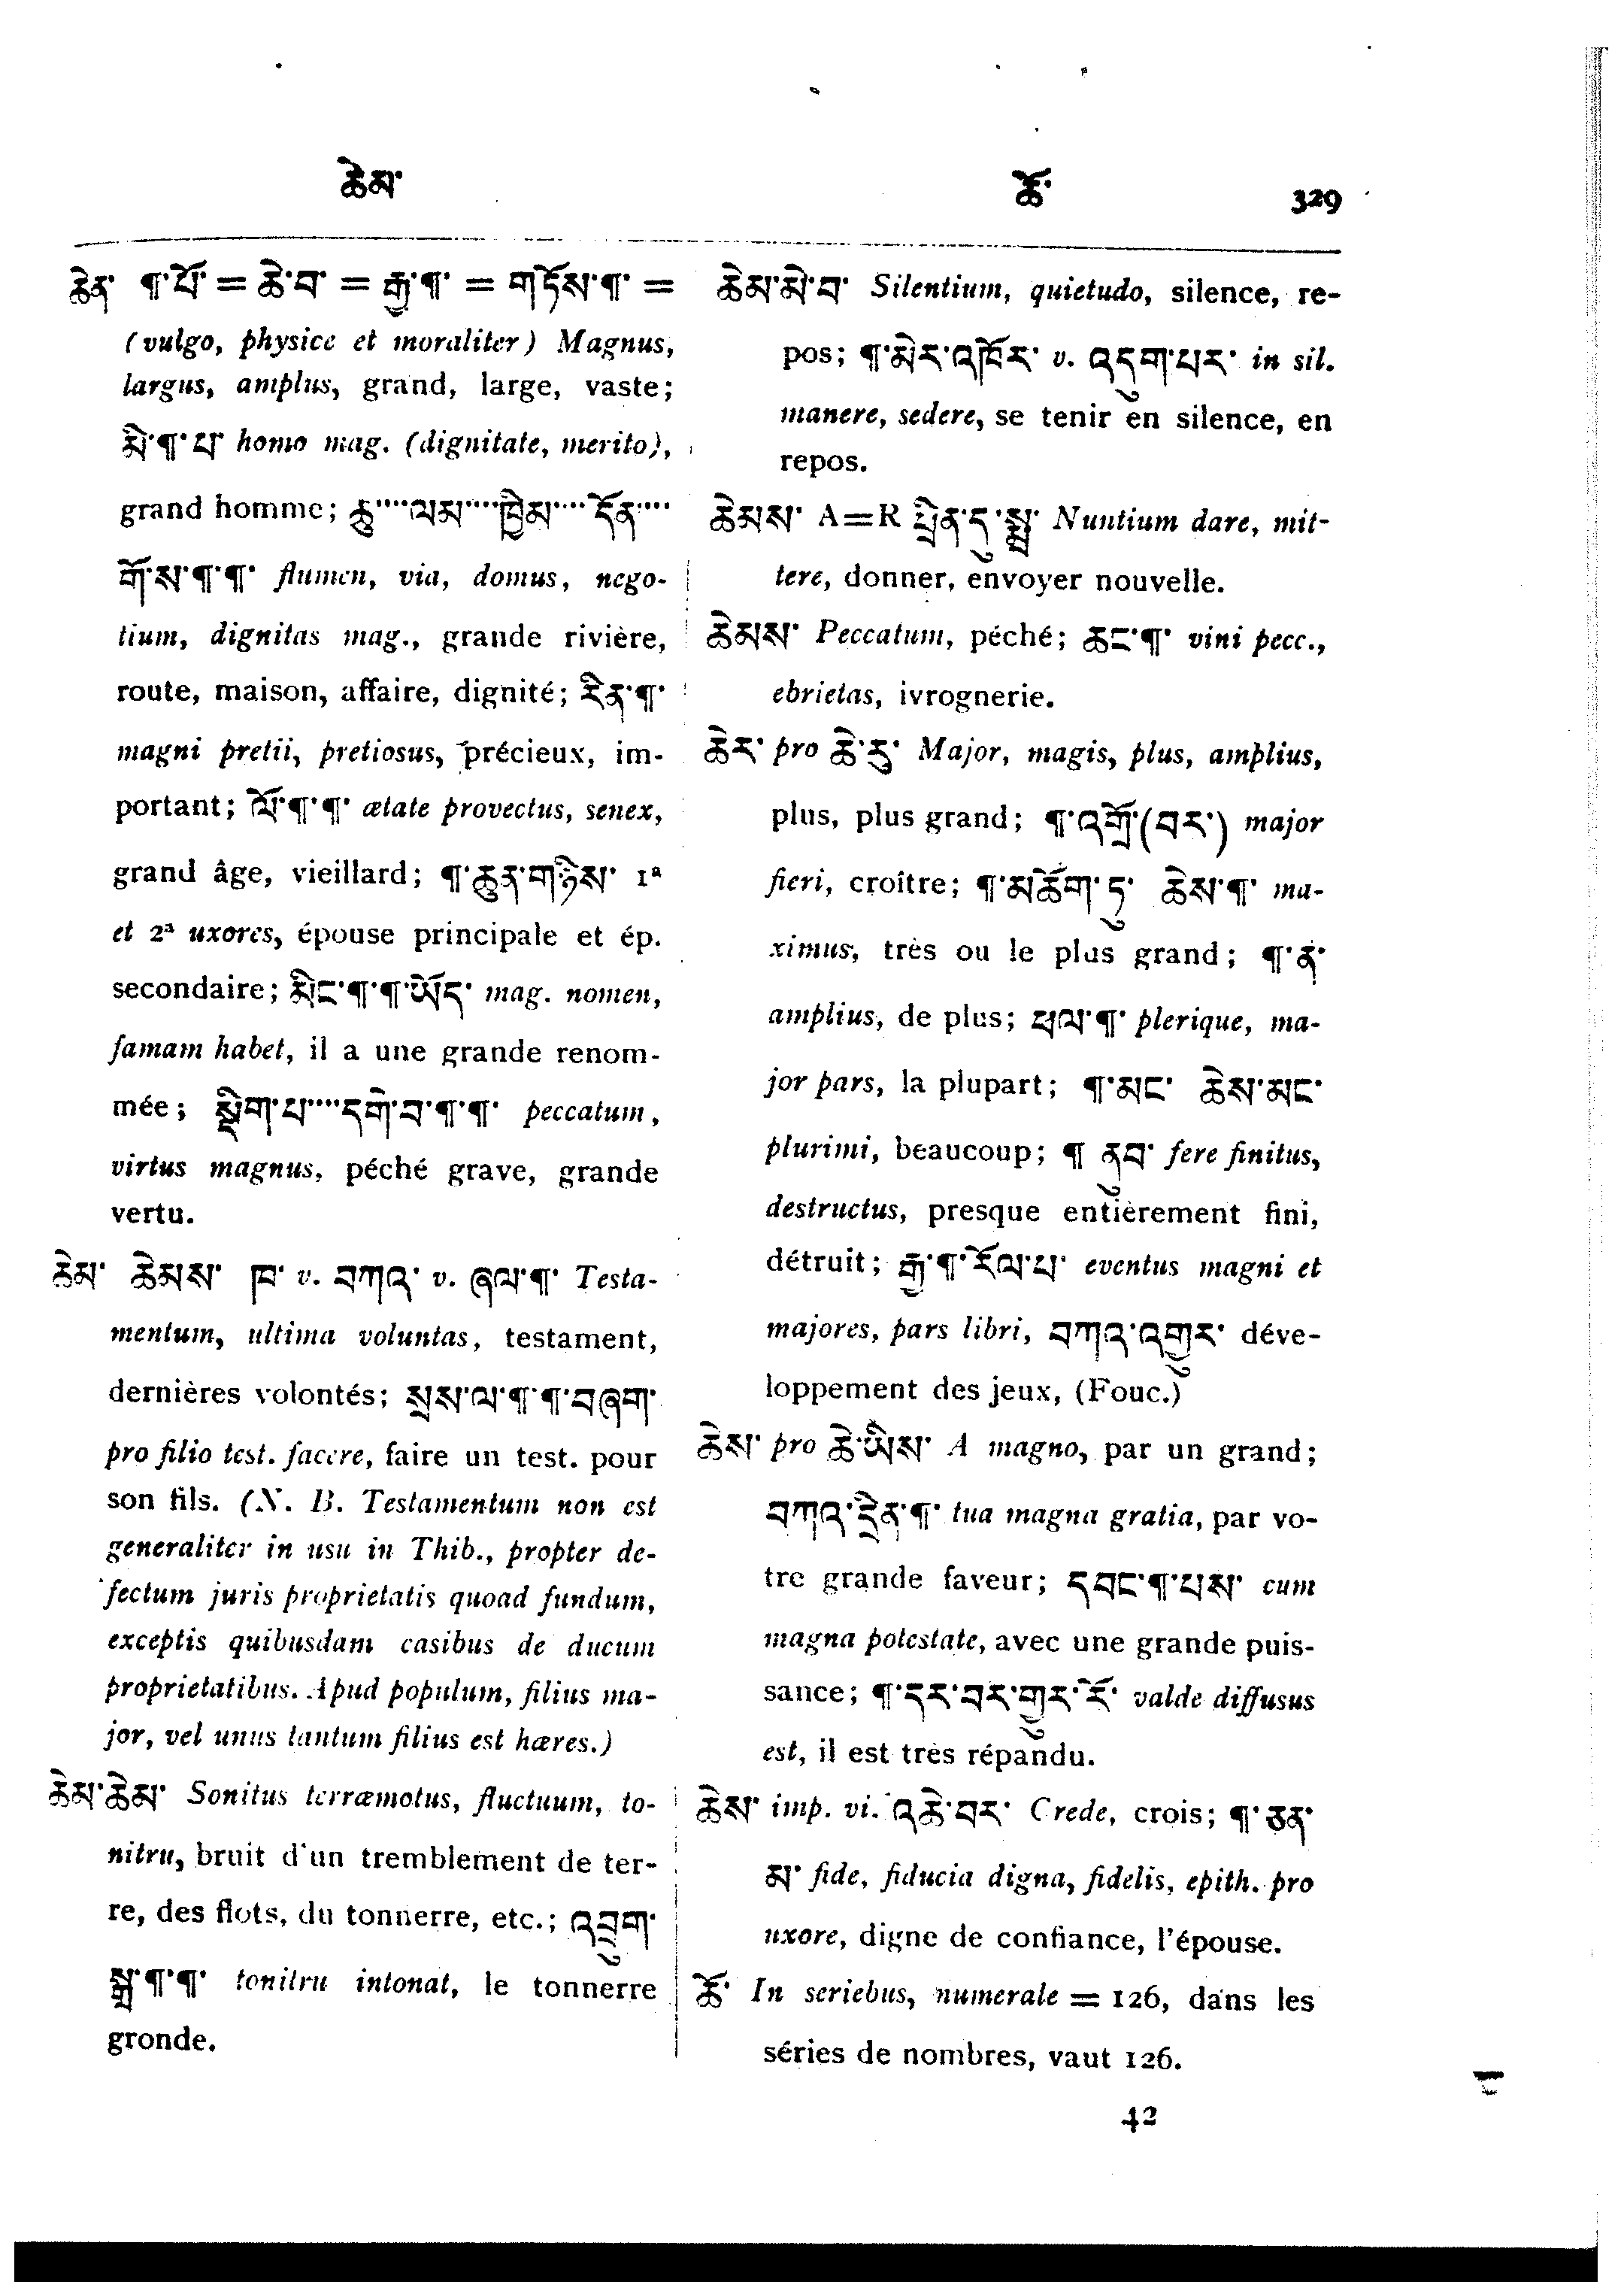 ཆེམ་
ཆོ་
329
ཆེན་ ¶་པོ་ = ཆེ་བ་ = རྒྱ་¶་ = གཏོས་¶་ =
(vulgo, physice et moraliter) Magnus,
largus, amplus, grand, large, vaste;
མི་¶་པ་ homo mag. (dignitate, merito),
grand homme; ཆུ་་་་ལམ་་་་ཁྱིམ་་་་དོན་་་་
གོ་ས་¶་¶་ flumen, via, domus, nego-
tium, dignitas mag., grande rivière,
route, maison, affaire, dignité; རིན་¶་
magni pretii, pretiosus, précieux, im-
portant; ལོ་¶་¶་ ætate provectus, senex,
grand âge, vieillard; ¶་ཆུན་གཉིས་ 1ª
et 2ª uxores, épouse principale et ép.
secondaire; མིང་¶་¶་ཡོད་ mag. nomen,
famam habet, il a une grande renom-
mée; སྡིག་པ་་་་དགེ་བ་¶་¶་ peccatum,
virtus magnus, péché grave, grande
vertu.
ཆེམ་ ཆེམས་ ཁ་ v. བཀའ་ v. ཞལ་¶་ Testa-
mentum, ultima voluntas, testament,
dernières volontés; སྲས་ལ་¶་¶་བཞག་
pro filio test. facere, faire un test. pour
son fils. (N. B. Testamentum non est
generaliter in usu in Thib., propter de-
fectum juris proprietatis quoad fundum,
exceptis quibusdam casibus de ducum
proprietatibus. Apud populum, filius ma-
jor, vel unus tantum filius est hæres.)
ཆེམ་ཆེམ་ Sonitus terræmotus, fluctuum, to-
nitru, bruit d'un tremblement de ter-
re, des flots, du tonnerre, etc.; འབྲུག་
སྒྲ་¶་¶་ tonitru intonat, le tonnerre
gronde.
ཆེམ་མེ་བ་ Silentium, quietudo, silence, re-
pos; ¶་མེར་འཁོར་ v. འདུག་པར་ in sil.
manere, sedere, se tenir en silence, en
repos.
ཆེམས་ A=R པྲིན་དུ་སྨྲ་ Nuntium dare, mit-
tere, donner, envoyer nouvelle.
ཆེམས་ Peccatum, péché; ཆང་¶་ vini pecc.,
ebrietas, ivrognerie.
ཆེར་ pro ཆེ་རུ་ Major, magis, plus, amplius,
plus, plus grand; ¶་འགྲོ་(བར་) major
fieri, croître; ¶་མཆོག་ཏུ་ ཆེས་¶་ ma-
ximus, très ou le plus grand; ¶་ན་
amplius, de plus; ཕལ་¶་ plerique, ma-
jor pars, la plupart; ¶་མང་ ཆེས་མང་
plurimi, beaucoup; ¶ ནུབ་ fere finitus,
destructus, presque entièrement fini,
détruit; རྒྱ་¶་རོལ་པ་ eventus magni et
majores, pars libri, བཀའ་འགྱུར་ déve-
loppement des jeux, (Fouc.)
ཆེས་ pro ཆེ་ཡིས་ A magno, par un grand;
བཀའ་དྲིན་¶་ tua magna gratia, par vo-
tre grande faveur; དབང་¶་པས་ cum
magna potestate, avec une grande puis-
sance; ¶་དར་བར་གྱུར་རོ་ valde diffusus
est, il est très répandu.
ཆེས་ imp. vi. འཆེ་བར་ Crede, crois; ¶་ཅན་
མ་ fide, fiducia digna, fidelis, epith. pro
uxore, digne de confiance, l'épouse.
ཆོ་ In seriebus, numerale = 126, dans les
séries de nombres, vaut 126.
42